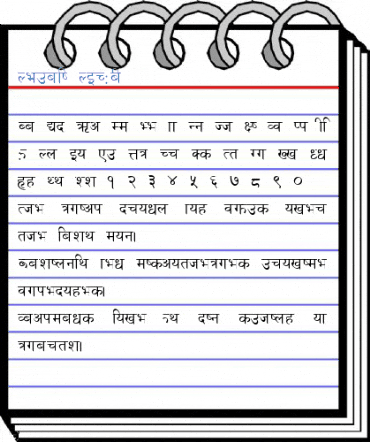 ल्भउबषि ल्इच:बै
ब्ब द्यद ऋअ म्म भ्भ ॥ न्न ज्ज क्ष्क्ष व्व प्प ीि
ल्ल इय एउ त्तत्र च्च क्क त्त ग्ग ख्ख ध्ध
हृह थ्थ श्श १ २ ३ ४ ५ ६ ७ ८ ९ ०
त्जभ त्रगष्अप दचयध्लल ायह वगउक यखभ्च
तजभ बिशथ मयन।
ाभध मष्कअयतजभत्रगभक उचयखष्मभ
वगपभदयहभक।
व्बअपमबधक यिखभ दष्न कउजप्लह या
त्रगबचतश।